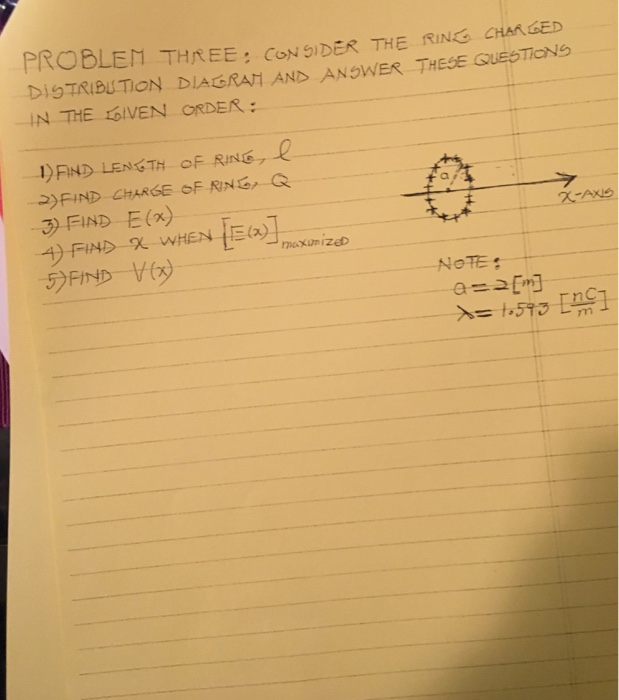 PROBLEM THREE: CONSIDER THE RING CHARGED
DISTRIBUTION DIAGRAM AND ANSWER THESE QUESTIONS
IN THE GIVEN ORDER:
1) FIND LENGTH OF RING, l
2) FIND CHARGE OF RING, Q
3) FIND E(x)
4) FIND x WHEN [E(x)] maximized
5) FIND V(x)
a
X-AXIS
NOTE:
a = 2 [m]
λ = 1.593 [nC/m]